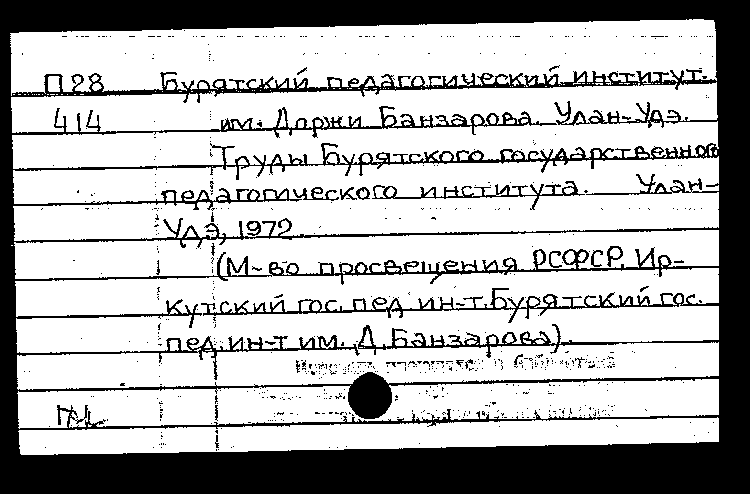 П28 Бурятский педагогический институт.
414 им. Доржи Банзарова. Улан-Удэ.
Труды Бурятского государственного
педагогического института. Улан-
Удэ, 1972.
(М-во просвещения РСФСР. Ир-
кутский гос. пед. ин-т. Бурятский гос.
пед. ин-т им. Д. Банзарова).